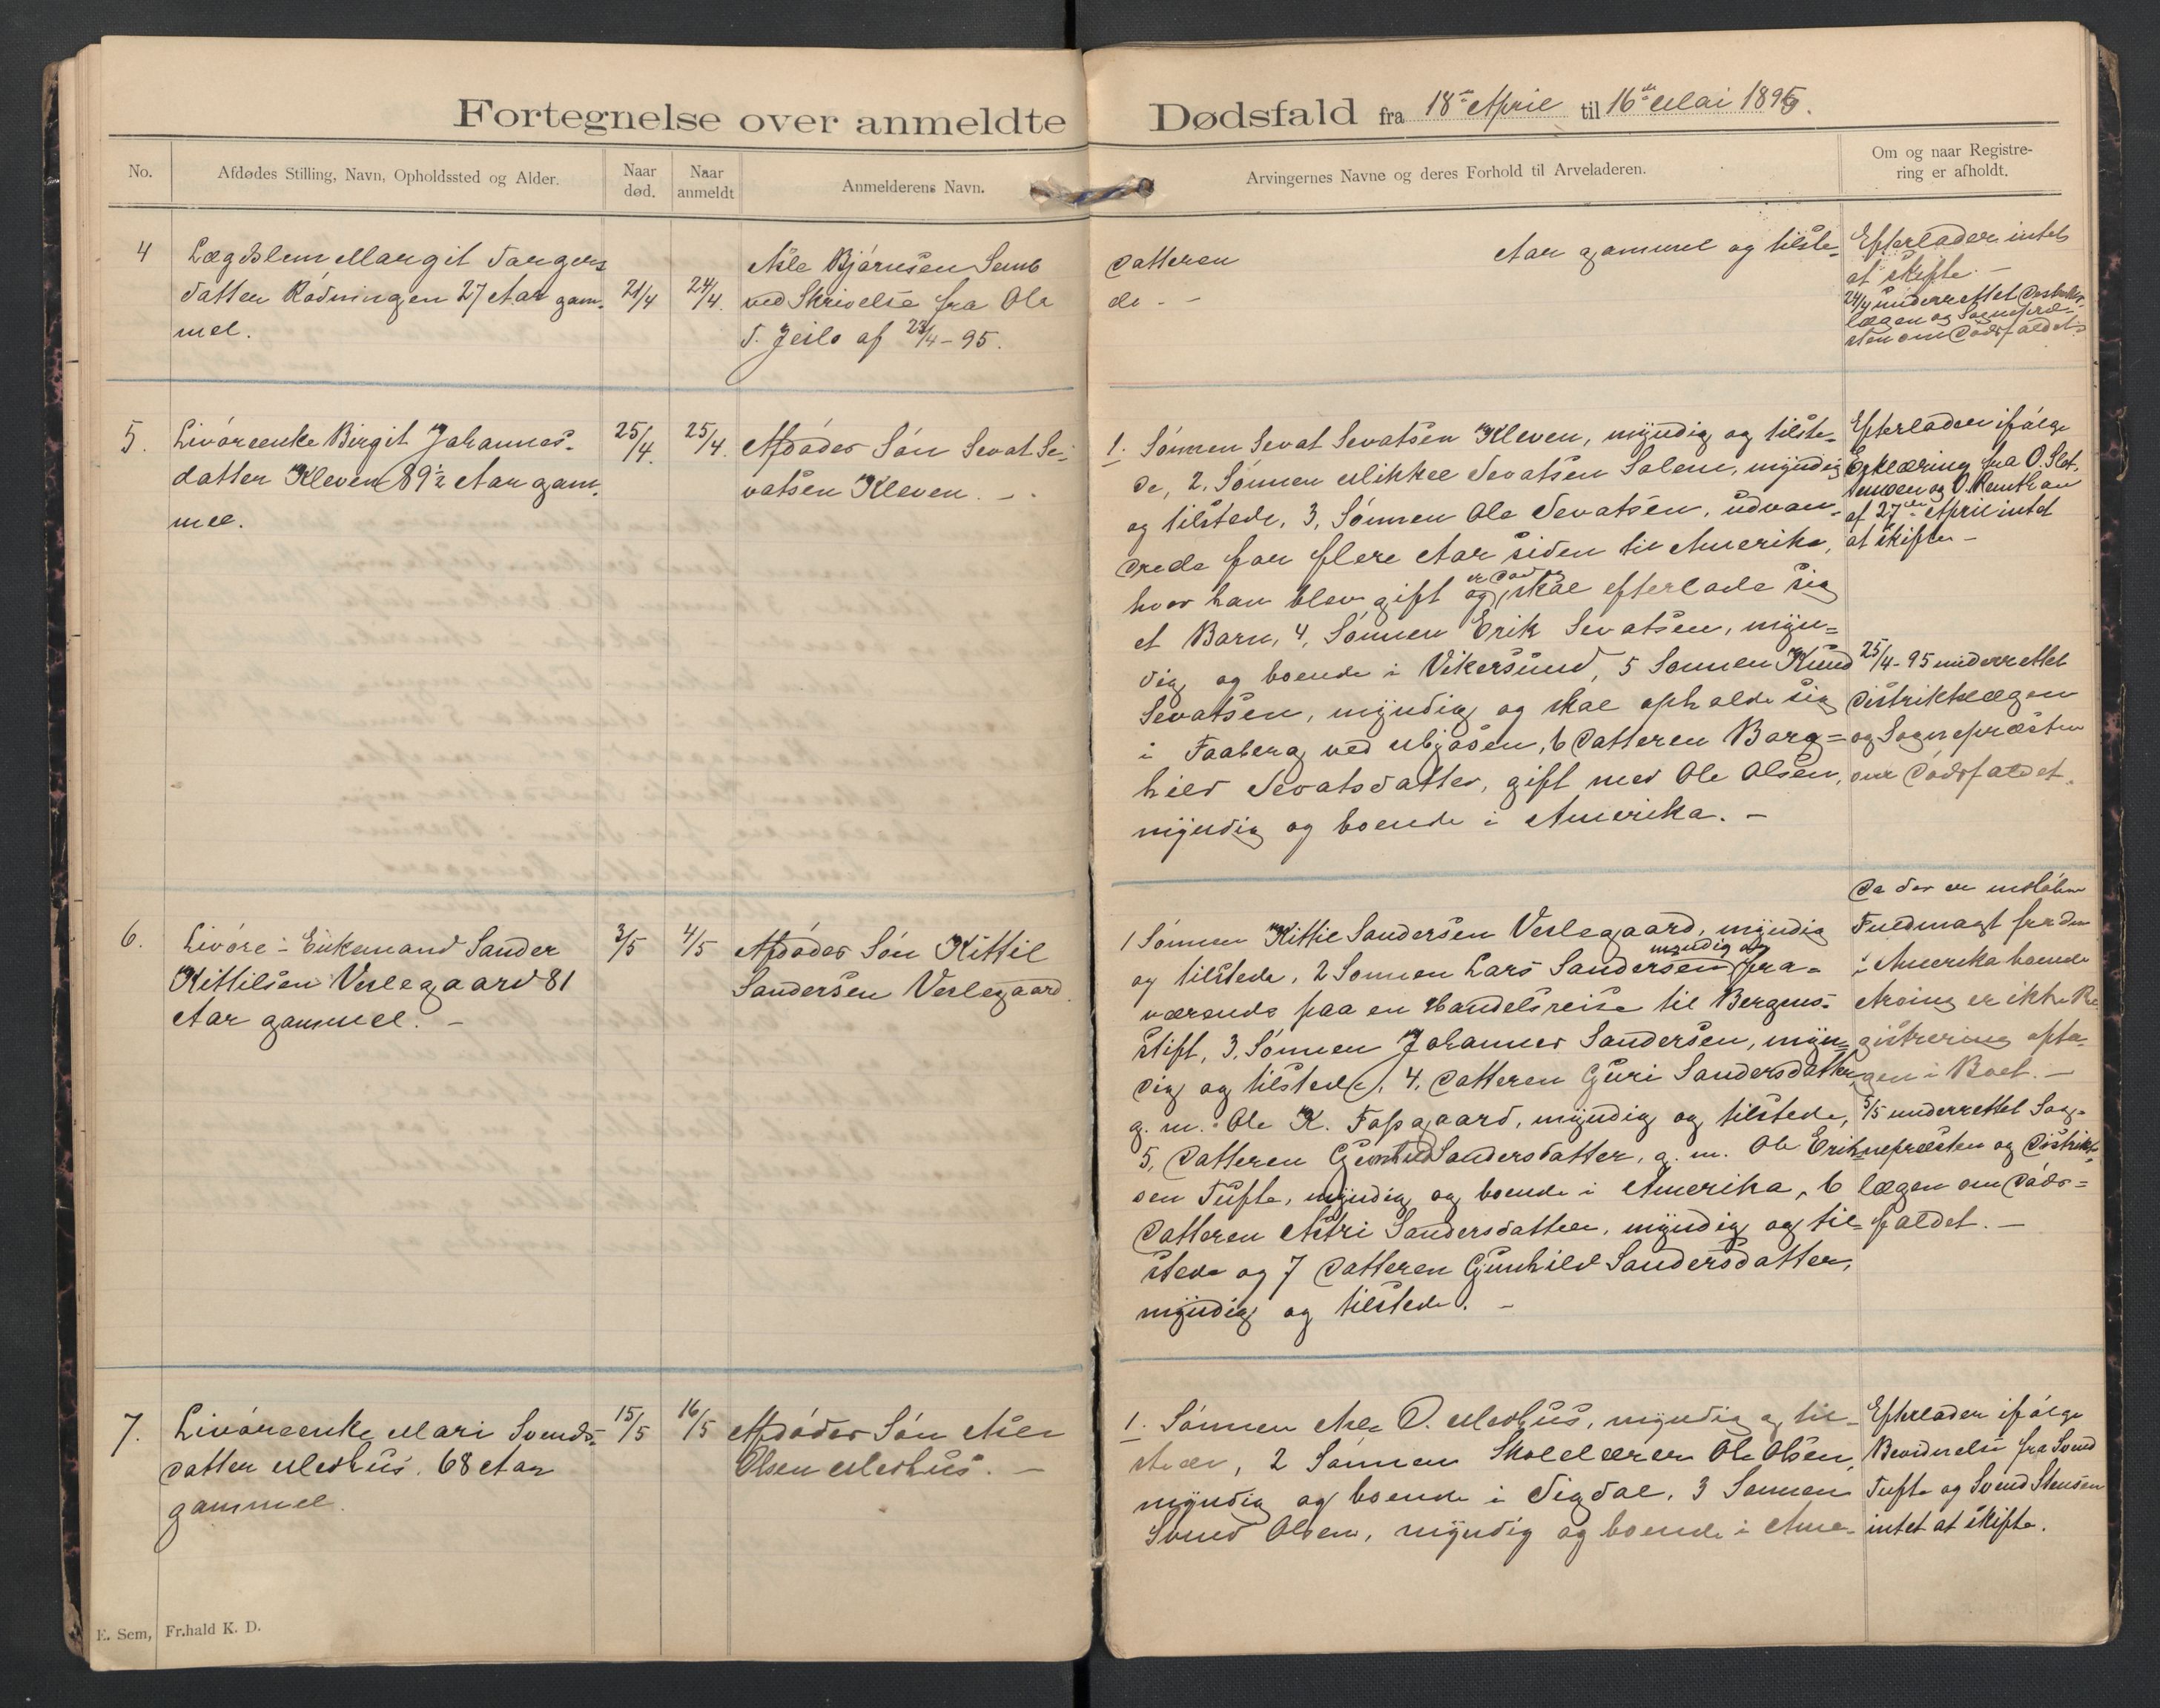 Fortegnelse over anmeldte Dødsfald fra 18de April til 16de Mai 1895.
No.
Afdødes Stilling, Navn, Opholdssted og Alder.
Naar
død.
Naar
anmeldt
Anmelderens Navn.
Arvingernes Navne og deres Forhold til Arveladeren.
Om og naar Registre-
ring er afholdt.
4
Lægdslem Margit Torgers
datter Rødningen 27 Aar gam-
mel.
21/4
24/4.
Asle Bjørnsen Semb
ved Skrivelse fra Ole
T. Jeilo af 23/4-95.
Datteren Aar gammel og tilste-
de. -
Efterlader intet
at skifte. -
24/4 underrettet Distrikts-
lægen og Sognepræ-
sten om Dødsfaldet.
5.
Livøreenke Birgit Johannes-
datter Kleven 89½ Aar gam-
mel.
25/4.
25/4.
Afdødes Søn Sevat Se-
vatsen Kleven. -
1. Sønnen Sevat Sevatsen Kleven, myndig og tilste-
de, 2. Sønnen Mikkel Sevatsen Solem, myndig
og tilstede, 3, Sønnen Ole Sevatsen, udvan-
drede for flere Aar siden til Amerika,
hvor han blev gift og er død og skal efterlade sig
et Barn, 4, Sønnen Erik Sevatsen, myn-
dig og boende i Vikersund, 5 Sønnen Knud
Sevatsen, myndig og skal opholde sig
i Faaberg ved Mjøsen, 6 Datteren Barg-
hild Sevatsdatter, gift med Ole Olsen,
myndig og boende i Amerika. -
Efterlader ifølge
Erklæring fra O. Slet-
temoen og O.
af 27de April intet
at skifte -
25/4-95 underrettet
Distriktslægen
og Sognepræsten
om Dødsfaldet.
6.
Livøre- Enkemand Sander
Kittilsen Veslegaard 81
Aar gammel. -
3/5
4/5
Afdødes Søn Kittil
Sandersen Veslegaard.
1 Sønnen Kittil Sandersen Veslegaard, myndig
og tilstede, 2 Sønnen Lars Sandersen myndig og fra-
værende paa en Handelsreise til Bergens-
stift, 3, Sønnen Johannes Sandersen, myn-
dig og tilstede, 4, Datteren Guri Sandersdatter,
g. m. Ole K. Fossgaard, myndig og tilstede,
5, Datteren Gunild Sandersdatter, g. m. Ole Erik-
sen Tufte, myndig og boende i Amerika, 6
Datteren Astri Sandersdatter, myndig og til-
stede og 7 Datteren Gunhild Sandersdatter,
myndig og tilstede. -
Da der er
Fuldmagt for den
i Amerika boende
Arving er ikke Re-
gistrering opta-
gen i Boet. -
5/5 underrettet Sog-
nepræsten og Distrikts-
lægen om Døds-
faldet. -
7.
Livøreenke Mari Svends-
datter Medhus, 68 Aar
gammel.
15/5
16/5
Afdødes Søn Asle
Olsen Medhus. -
1. Sønnen Asle O. Medhus, myndig og til-
stede, 2 Sønnen Skolelærer Ole Olsen,
myndig og boende i Sigdal, 3 Sønnen
Svend Olsen, myndig og boende i Ame-
Efterlader ifølge
Bevidnelse fra Svend
Tufte og Svend Stensen
intet at skifte.
E. Sem, Fr.hald K. D.